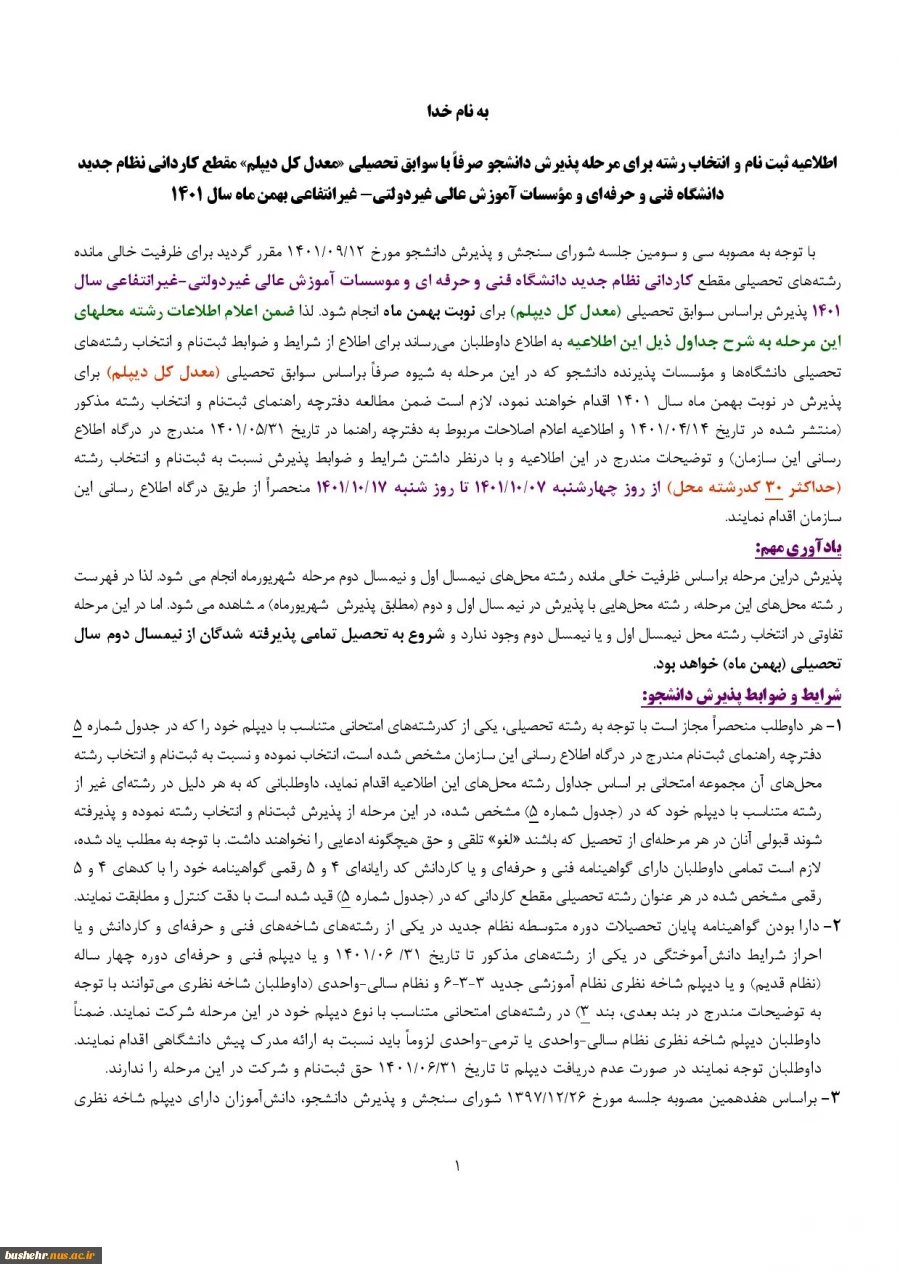 به نام خدا
اطلاعیه ثبت نام و انتخاب رشته برای مرحله پذیرش دانشجو صرفاً با سوابق تحصیلی «معدل کل دیپلم» مقطع کاردانی نظام جدید
دانشگاه فنی و حرفه‌ای و مؤسسات آموزش عالی غیردولتی– غیرانتفاعی بهمن ماه سال ۱۴۰۱
با توجه به مصوبه سی و سومین جلسه شورای سنجش و پذیرش دانشجو مورخ ۱۴۰۱/۰۹/۱۲ مقرر گردید برای ظرفیت خالی مانده
رشته‌های تحصیلی مقطع کاردانی نظام جدید دانشگاه فنی و حرفه ای و موسسات آموزش عالی غیردولتی-غیرانتفاعی سال
۱۴۰۱ پذیرش براساس سوابق تحصیلی (معدل کل دیپلم) برای نوبت بهمن ماه انجام شود. لذا ضمن اعلام اطلاعات رشته محلهای
این مرحله به شرح جداول ذیل این اطلاعیه به اطلاع داوطلبان می‌رساند برای اطلاع از شرایط و ضوابط ثبت‌نام و انتخاب رشته‌های
تحصیلی دانشگاه‌ها و مؤسسات پذیرنده دانشجو که در این مرحله به شیوه صرفاً براساس سوابق تحصیلی (معدل کل دیپلم) برای
پذیرش در نوبت بهمن ماه سال ۱۴۰۱ اقدام خواهند نمود، لازم است ضمن مطالعه دفترچه راهنمای ثبت‌نام و انتخاب رشته مذکور
(منتشر شده در تاریخ ۱۴۰۱/۰۴/۱۴ و اطلاعیه اعلام اصلاحات مربوط به دفترچه راهنما در تاریخ ۱۴۰۱/۰۵/۳۱ مندرج در درگاه اطلاع
رسانی این سازمان) و توضیحات مندرج در این اطلاعیه و با درنظر داشتن شرایط و ضوابط پذیرش نسبت به ثبت‌نام و انتخاب رشته
(حداکثر ۳۰ کدرشته محل) از روز چهارشنبه ۱۴۰۱/۱۰/۰۷ تا روز شنبه ۱۴۰۱/۱۰/۱۷ منحصراً از طریق درگاه اطلاع رسانی این
سازمان اقدام نمایند.
یادآوری مهم:
پذیرش دراین مرحله براساس ظرفیت خالی مانده رشته محل‌های نیمسال اول و نیمسال دوم مرحله شهریورماه انجام می شود. لذا در فهرست
رشته محل‌های این مرحله، رشته محل‌هایی با پذیرش در نیمسال اول و دوم (مطابق پذیرش شهریورماه) مشاهده می شود. اما در این مرحله
تفاوتی در انتخاب رشته محل نیمسال اول و یا نیمسال دوم وجود ندارد و شروع به تحصیل تمامی پذیرفته شدگان از نیمسال دوم سال
تحصیلی (بهمن ماه) خواهد بود.
شرایط و ضوابط پذیرش دانشجو:
۱- هر داوطلب منحصراً مجاز است با توجه به رشته تحصیلی، یکی از کدرشته‌های امتحانی متناسب با دیپلم خود را که در جدول شماره ۵
دفترچه راهنمای ثبت‌نام مندرج در درگاه اطلاع رسانی این سازمان مشخص شده است، انتخاب نموده و نسبت به ثبت‌نام و انتخاب رشته
محل‌های آن مجموعه امتحانی بر اساس جداول رشته محل‌های این اطلاعیه اقدام نماید، داوطلبانی که به هر دلیل در رشته‌ای غیر از
رشته متناسب با دیپلم خود که در (جدول شماره ۵) مشخص شده، در این مرحله از پذیرش ثبت‌نام و انتخاب رشته نموده و پذیرفته
شوند قبولی آنان در هر مرحله‌ای از تحصیل که باشند «لغو» تلقی و حق هیچگونه ادعایی را نخواهند داشت. با توجه به مطلب یاد شده،
لازم است تمامی داوطلبان دارای گواهینامه فنی و حرفه‌ای و یا کاردانش کد رایانه‌ای ۴ و ۵ رقمی گواهینامه خود را با کدهای ۴ و ۵
رقمی مشخص شده در هر عنوان رشته تحصیلی مقطع کاردانی که در (جدول شماره ۵) قید شده است با دقت کنترل و مطابقت نمایند.
۲- دارا بودن گواهینامه پایان تحصیلات دوره متوسطه نظام جدید در یکی از رشته‌های شاخه‌های فنی و حرفه‌ای و کاردانش و یا
احراز شرایط دانش‌آموختگی در یکی از رشته‌های مذکور تا تاریخ ۳۱/ ۱۴۰۱/۰۶ و یا دیپلم فنی و حرفه‌ای دوره چهار ساله
(نظام قدیم) و یا دیپلم شاخه نظری نظام آموزشی جدید ۳-۳-۶ و نظام سالی-واحدی (داوطلبان شاخه نظری می‌توانند با توجه
به توضیحات مندرج در بند بعدی، بند ۳) در رشته‌های امتحانی متناسب با نوع دیپلم خود در این مرحله شرکت نمایند. ضمناً
داوطلبان دیپلم شاخه نظری نظام سالی-واحدی یا ترمی-واحدی لزوماً باید نسبت به ارائه مدرک پیش دانشگاهی اقدام نمایند.
داوطلبان توجه نمایند در صورت عدم دریافت دیپلم تا تاریخ ۱۴۰۱/۰۶/۳۱ حق ثبت‌نام و شرکت در این مرحله را ندارند.
۳- براساس هفدهمین مصوبه جلسه مورخ ۱۳۹۷/۱۲/۲۶ شورای سنجش و پذیرش دانشجو، دانش‌آموزان دارای دیپلم شاخه نظری
۱
bushehr.nus.ac.ir